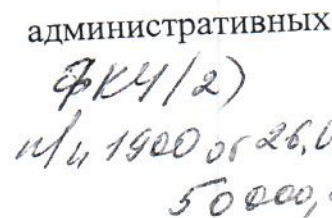 административных
ФКУ/2)
п/п 1900 от 26,0
50000,